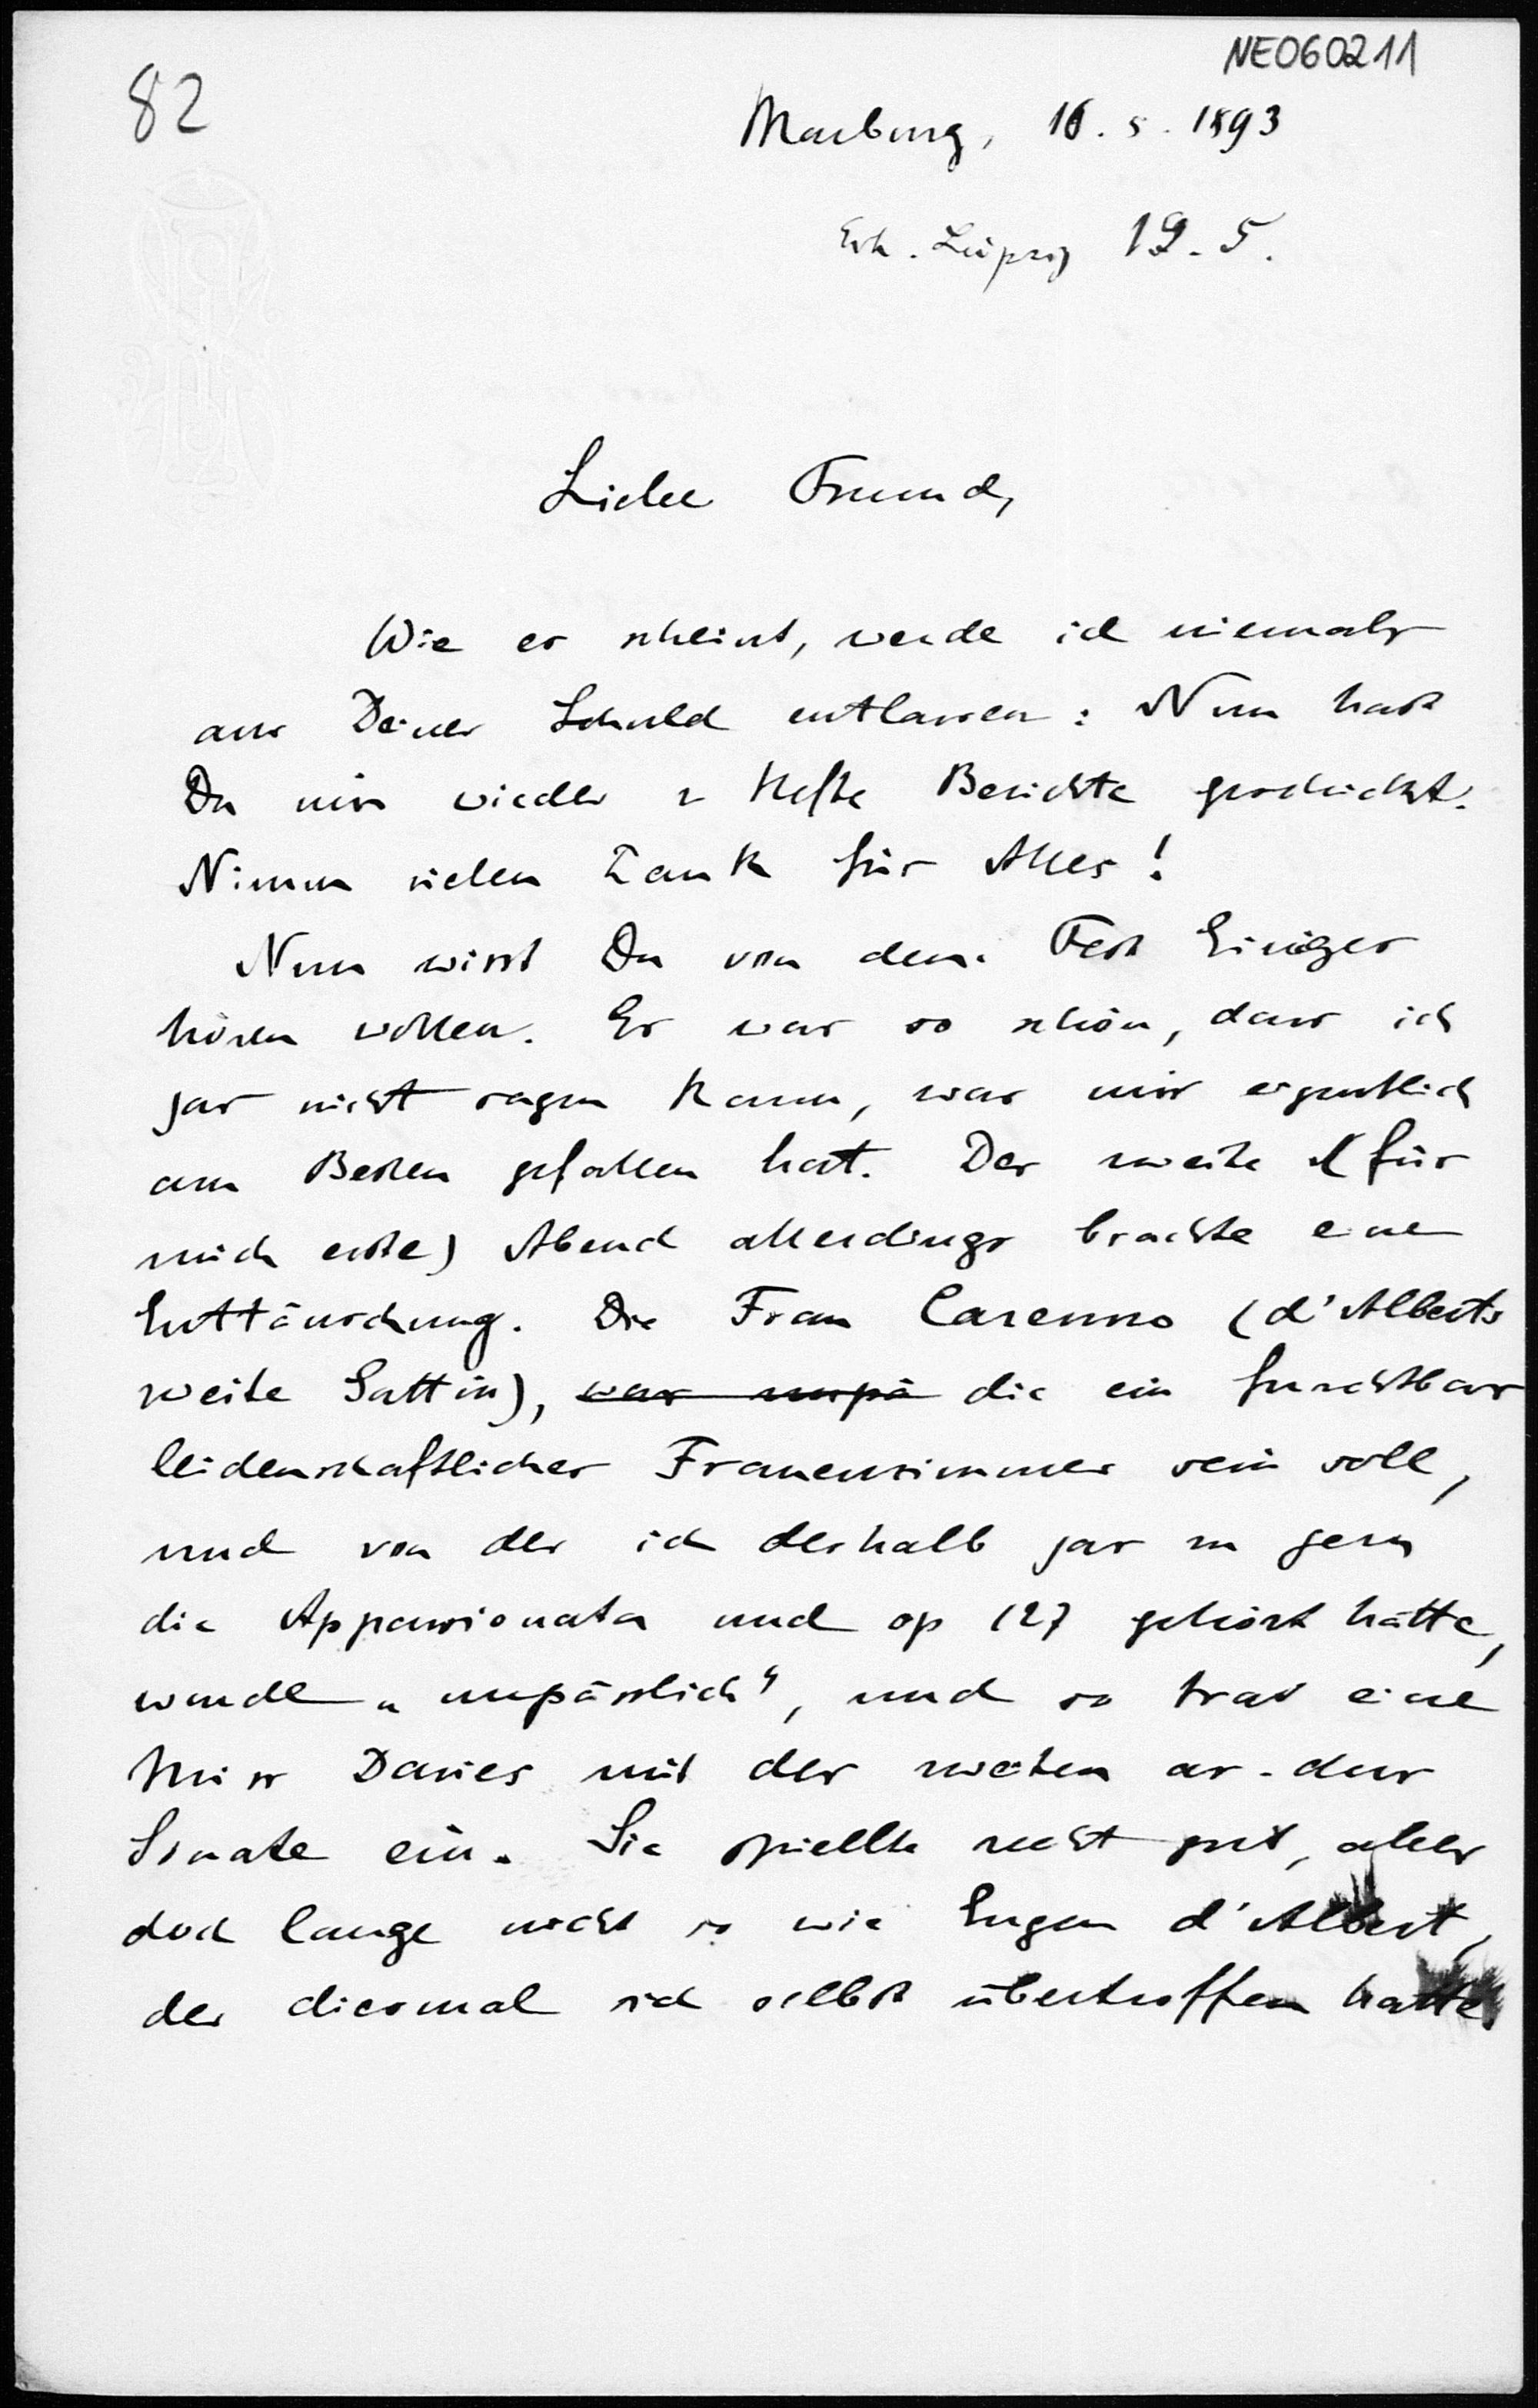 NE060211
82
Marburg, 16. 5. 1893
Erh. Leipzig 19. 5.
Lieber Freund,
Wie es scheint, werde ich niemals
aus Deiner Schuld entlassen: Nun hast
Du mir wieder 2 Hefte Berichte geschickt.
Nimm vielen Dank für Alles!
Nun wirst Du von dem Fest Einiges
hören wollen. Es war so schön, dass ich
gar nicht sagen kann, was mir eigentlich
am Besten gefallen hat. Der zweite (für
mich erste) Abend allerdings brachte eine
Enttäuschung. Die Frau Carenno (d'Alberts
zweite Gattin), war unpä die ein furchtbar
leidenschaftliches Frauenzimmer sein soll,
und von der ich deshalb gar zu gern
die Appassionata und op 127 gehört hätte,
wurde „unpässlich“, und so trat eine
Miss Davies mit der zweiten as-dur
Sonate ein. Sie spielte recht gut, aber
doch lange nicht so wie Eugen d'Albert,
der diesmal sich selbst übertroffen hatte.